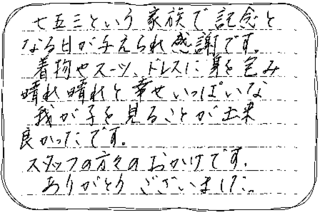 七五三という家族で記念と
なる日が与えられ感謝です。
着物やスーツ、ドレスに身を包み
晴れ晴れと幸せいっぱいな
我が子を見ることが出来
良かったです。
スタッフの方々のおかげです。
ありがとうございました。